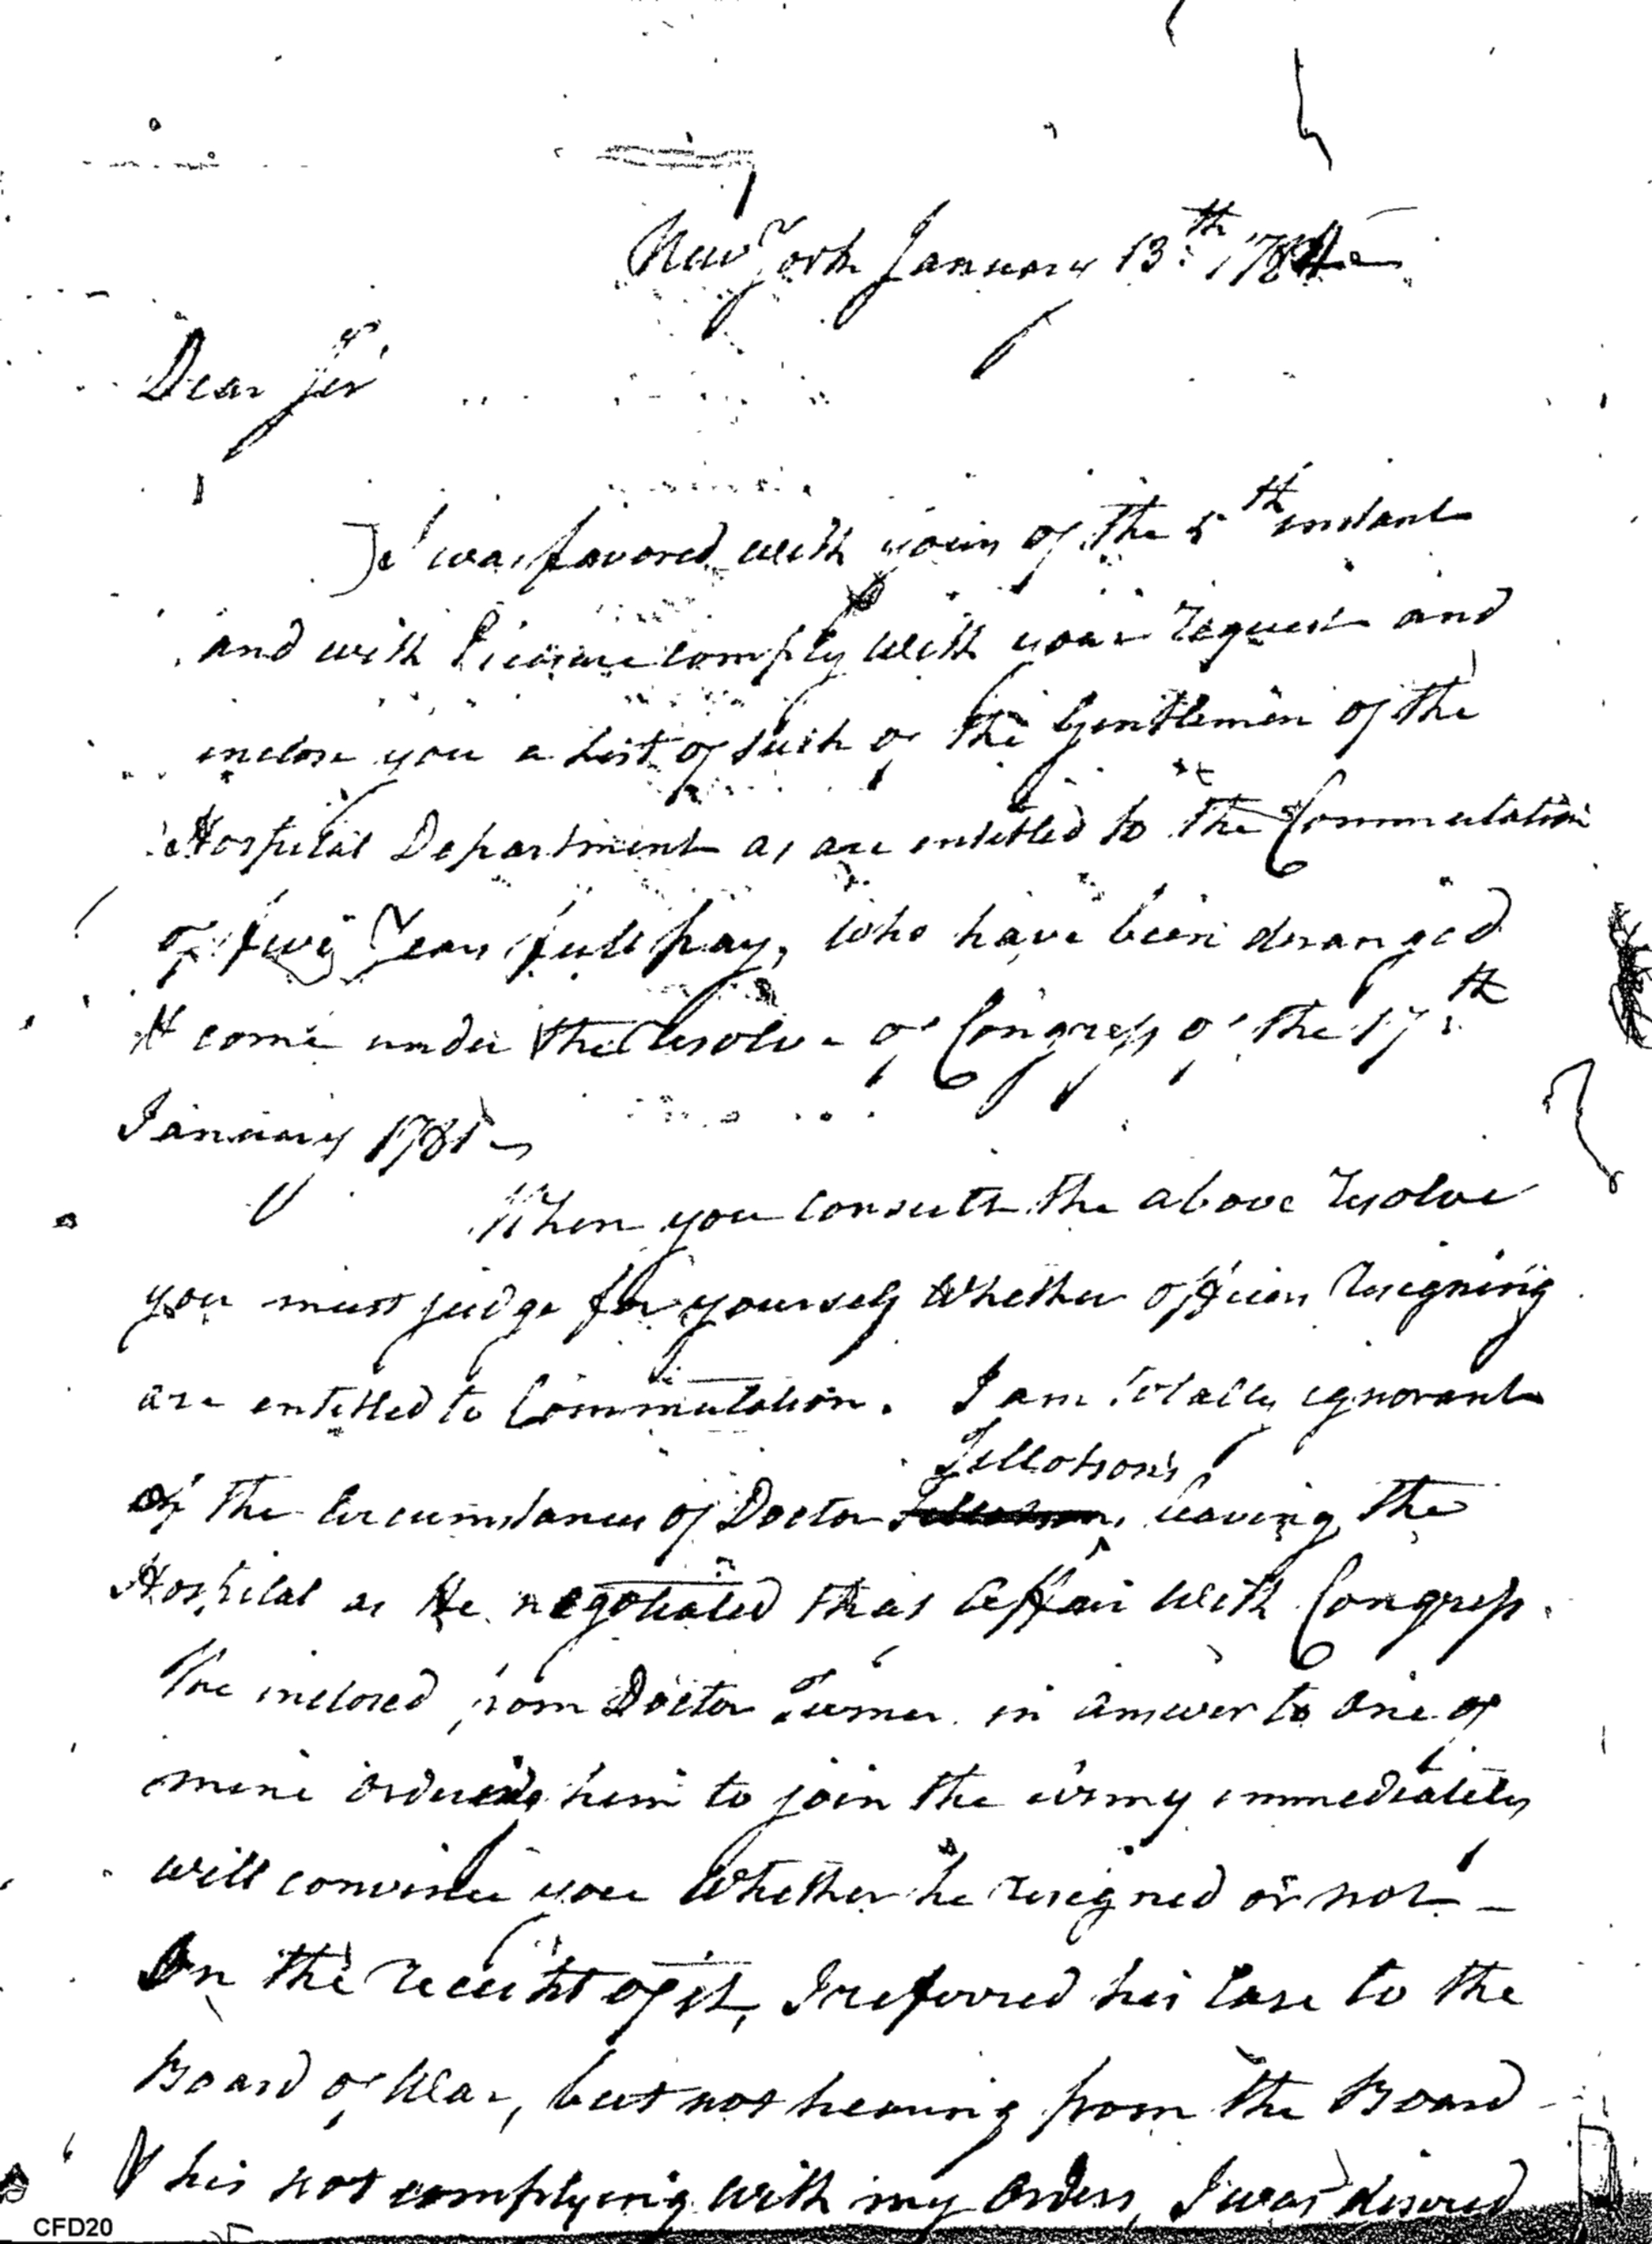 New York January 13th 1784
Dear Sir
I was favored with yours of the 5th instant
and with Pleasure comply with your request and
inclose you a List of such of the Gentlemen of the
Hospital Department as are entitled to the Commutation
of five Years full pay, who have been deranged
& come under the Resolve of Congress of the 17th
January 1781
When you consult the above resolve
you must judge for yourself Whether officers resigning
are entitled to Commutation. I am totally ignorant
Tillotson's
of the Circumstances of Doctor leaving the
Hospital as He negotiated that affair with Congress.
The inclosed from Doctor Turner in answer to one of
mine ordering him to join the army immediately
will convince you Whether he resigned or not –
On the receipt of it, I referred his Case to the
Board of War, but not hearing from the Board
& his not complying with my Orders, I was desired
CFD20